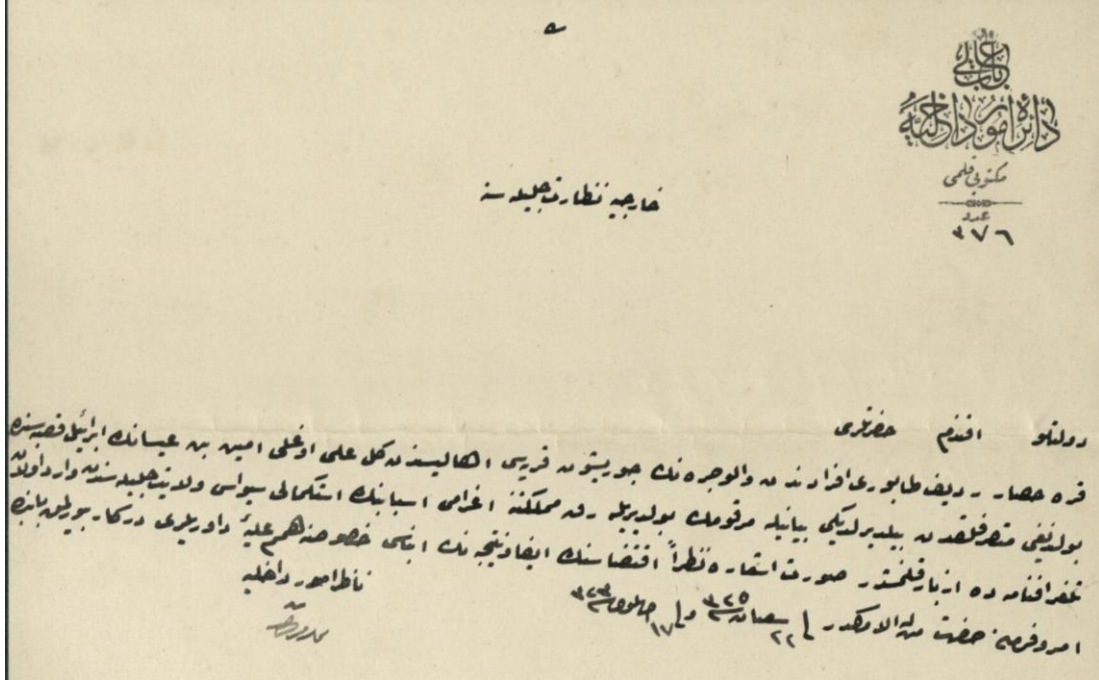 باب عالی
دائره امور داخلیه
مكتوبی قلمی
عدد
۳۷٦
خارجیه نظارت جلیله سنه
دولتلو افندم حضرتلری
قره حصار ردیف طابوری افرادندن والوجره نك جوریشون قریه سی اهالیسندن كل علی اوغلی امین بن عیسانك ابرائیل قصبه سنده
بولندیغی متصرفلقدن بیلدیرلدیكی بیانیله مرقومك بولدیریله رق مملكتنه اعزامی اسبابنك استكمالی سیواس ولایت جلیله سندن وارد اولان
تلغرافنامه ده ازبار قلنمشدر صورت اشعاره نظراً اقتضاسنك ایفا ونتیجه نك انباسی خصوصنه همم علیهٔ داوریلری دركار بیورلمق بابنده
امر وفرمان حضرت من له الامركدر فی ۲۲ شعبان سنه ۳۲۵ وفی ۱۷ ایلول سنه ۳۲۳
ناظر امور داخلیه